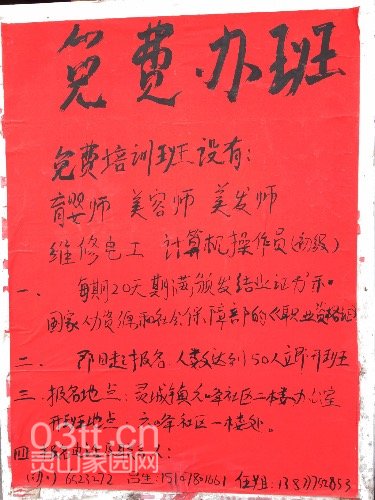 免费办班
免费培训班设有:
育婴师 美容师 美发师
维修电工 计算机操作员(初级)
一、每期20天期满,颁发结业证为示。
国家人力资源和社会保障部的《职业资格证》
二、即日起报名,人数达到50人立即开班
三、报名地点:灵城镇 峰社区二楼办公室
开班地点: 峰社区一楼处。
四
03tt.cn
灵山家园网